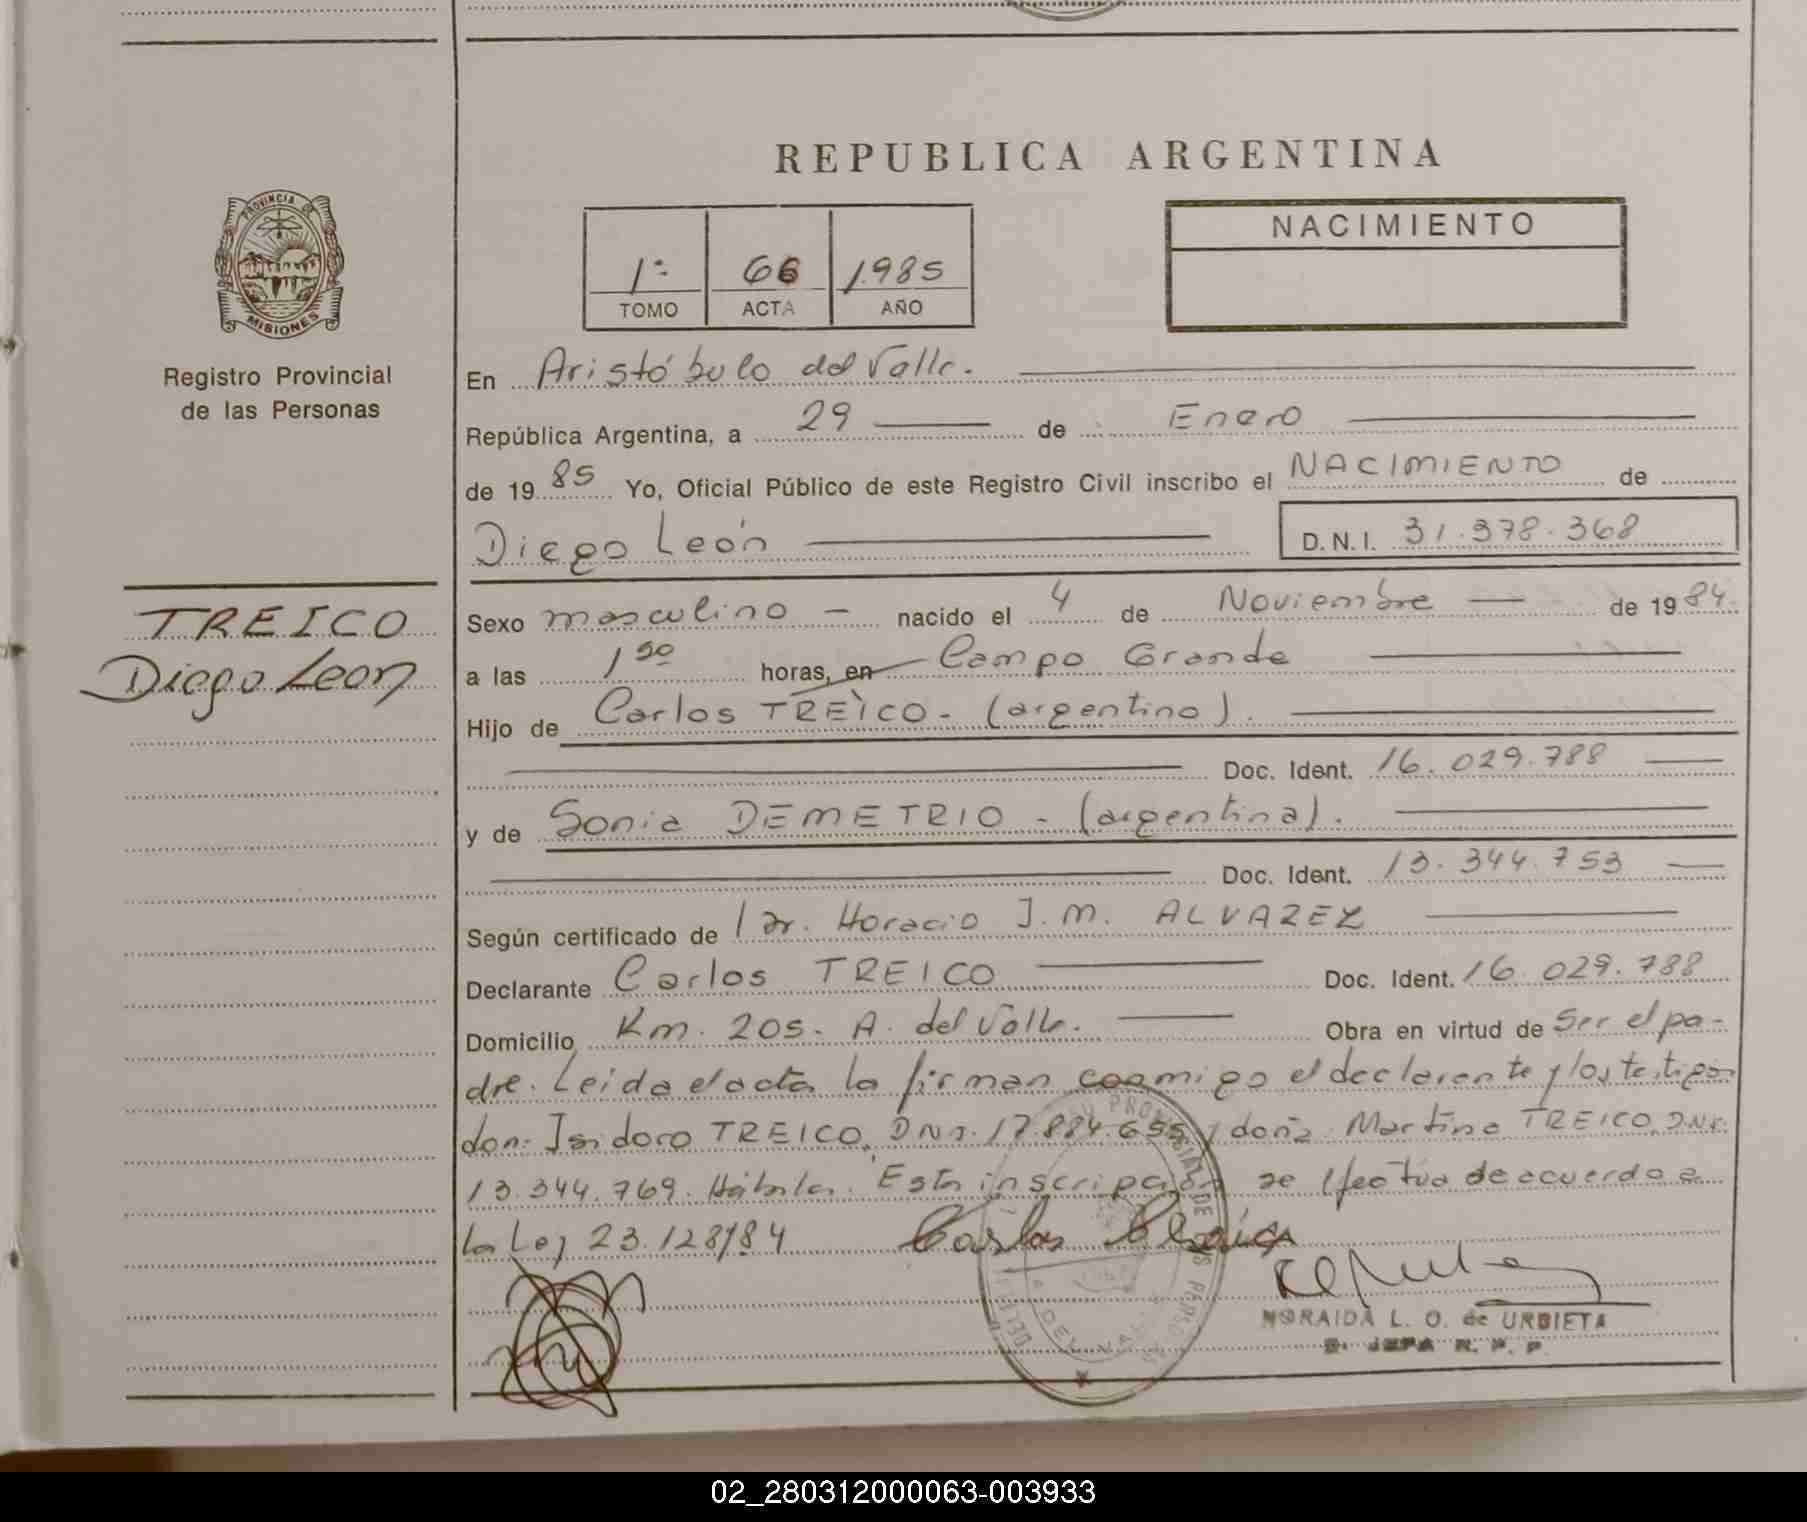 REPUBLICA ARGENTINA
PROVINCIA DE
MISIONES
Registro Provincial
de las Personas
1º 66 1.985
TOMO ACTA AÑO
NACIMIENTO
En Aristóbulo del Valle.
República Argentina, a 29 de Enero
de 1985 Yo, Oficial Público de este Registro Civil inscribo el NACIMIENTO de
Diego León D.N.I. 31.378.368
TREICO
Diego Leon
Sexo masculino - nacido el 4 de Noviembre de 1984
a las 1 50 horas, en Campo Grande
Hijo de Carlos TREICO - (argentino).
Doc. Ident. 16.029.788
y de Sonia DEMETRIO - (argentina).
Doc. Ident. 13.344.753
Según certificado de Dr. Horacio J. M. ALVAREZ
Declarante Carlos TREICO Doc. Ident. 16.029.788
Domicilio Km. 205 - A. del Valle. Obra en virtud de Ser el pa-
dre. Leida el acta la firman conmigo el declarante y los testigos
don: Isidoro TREICO, DNI. 17.884.655 y doña Martina TREICO, DNI.
13.344.769. Hábiles. Esta inscripción se efectúa de acuerdo a
la Ley 23.128/84 Carlos
NORAIDA L. O. de URBIETA
JEFA R. P. P.
02_280312000063-003933